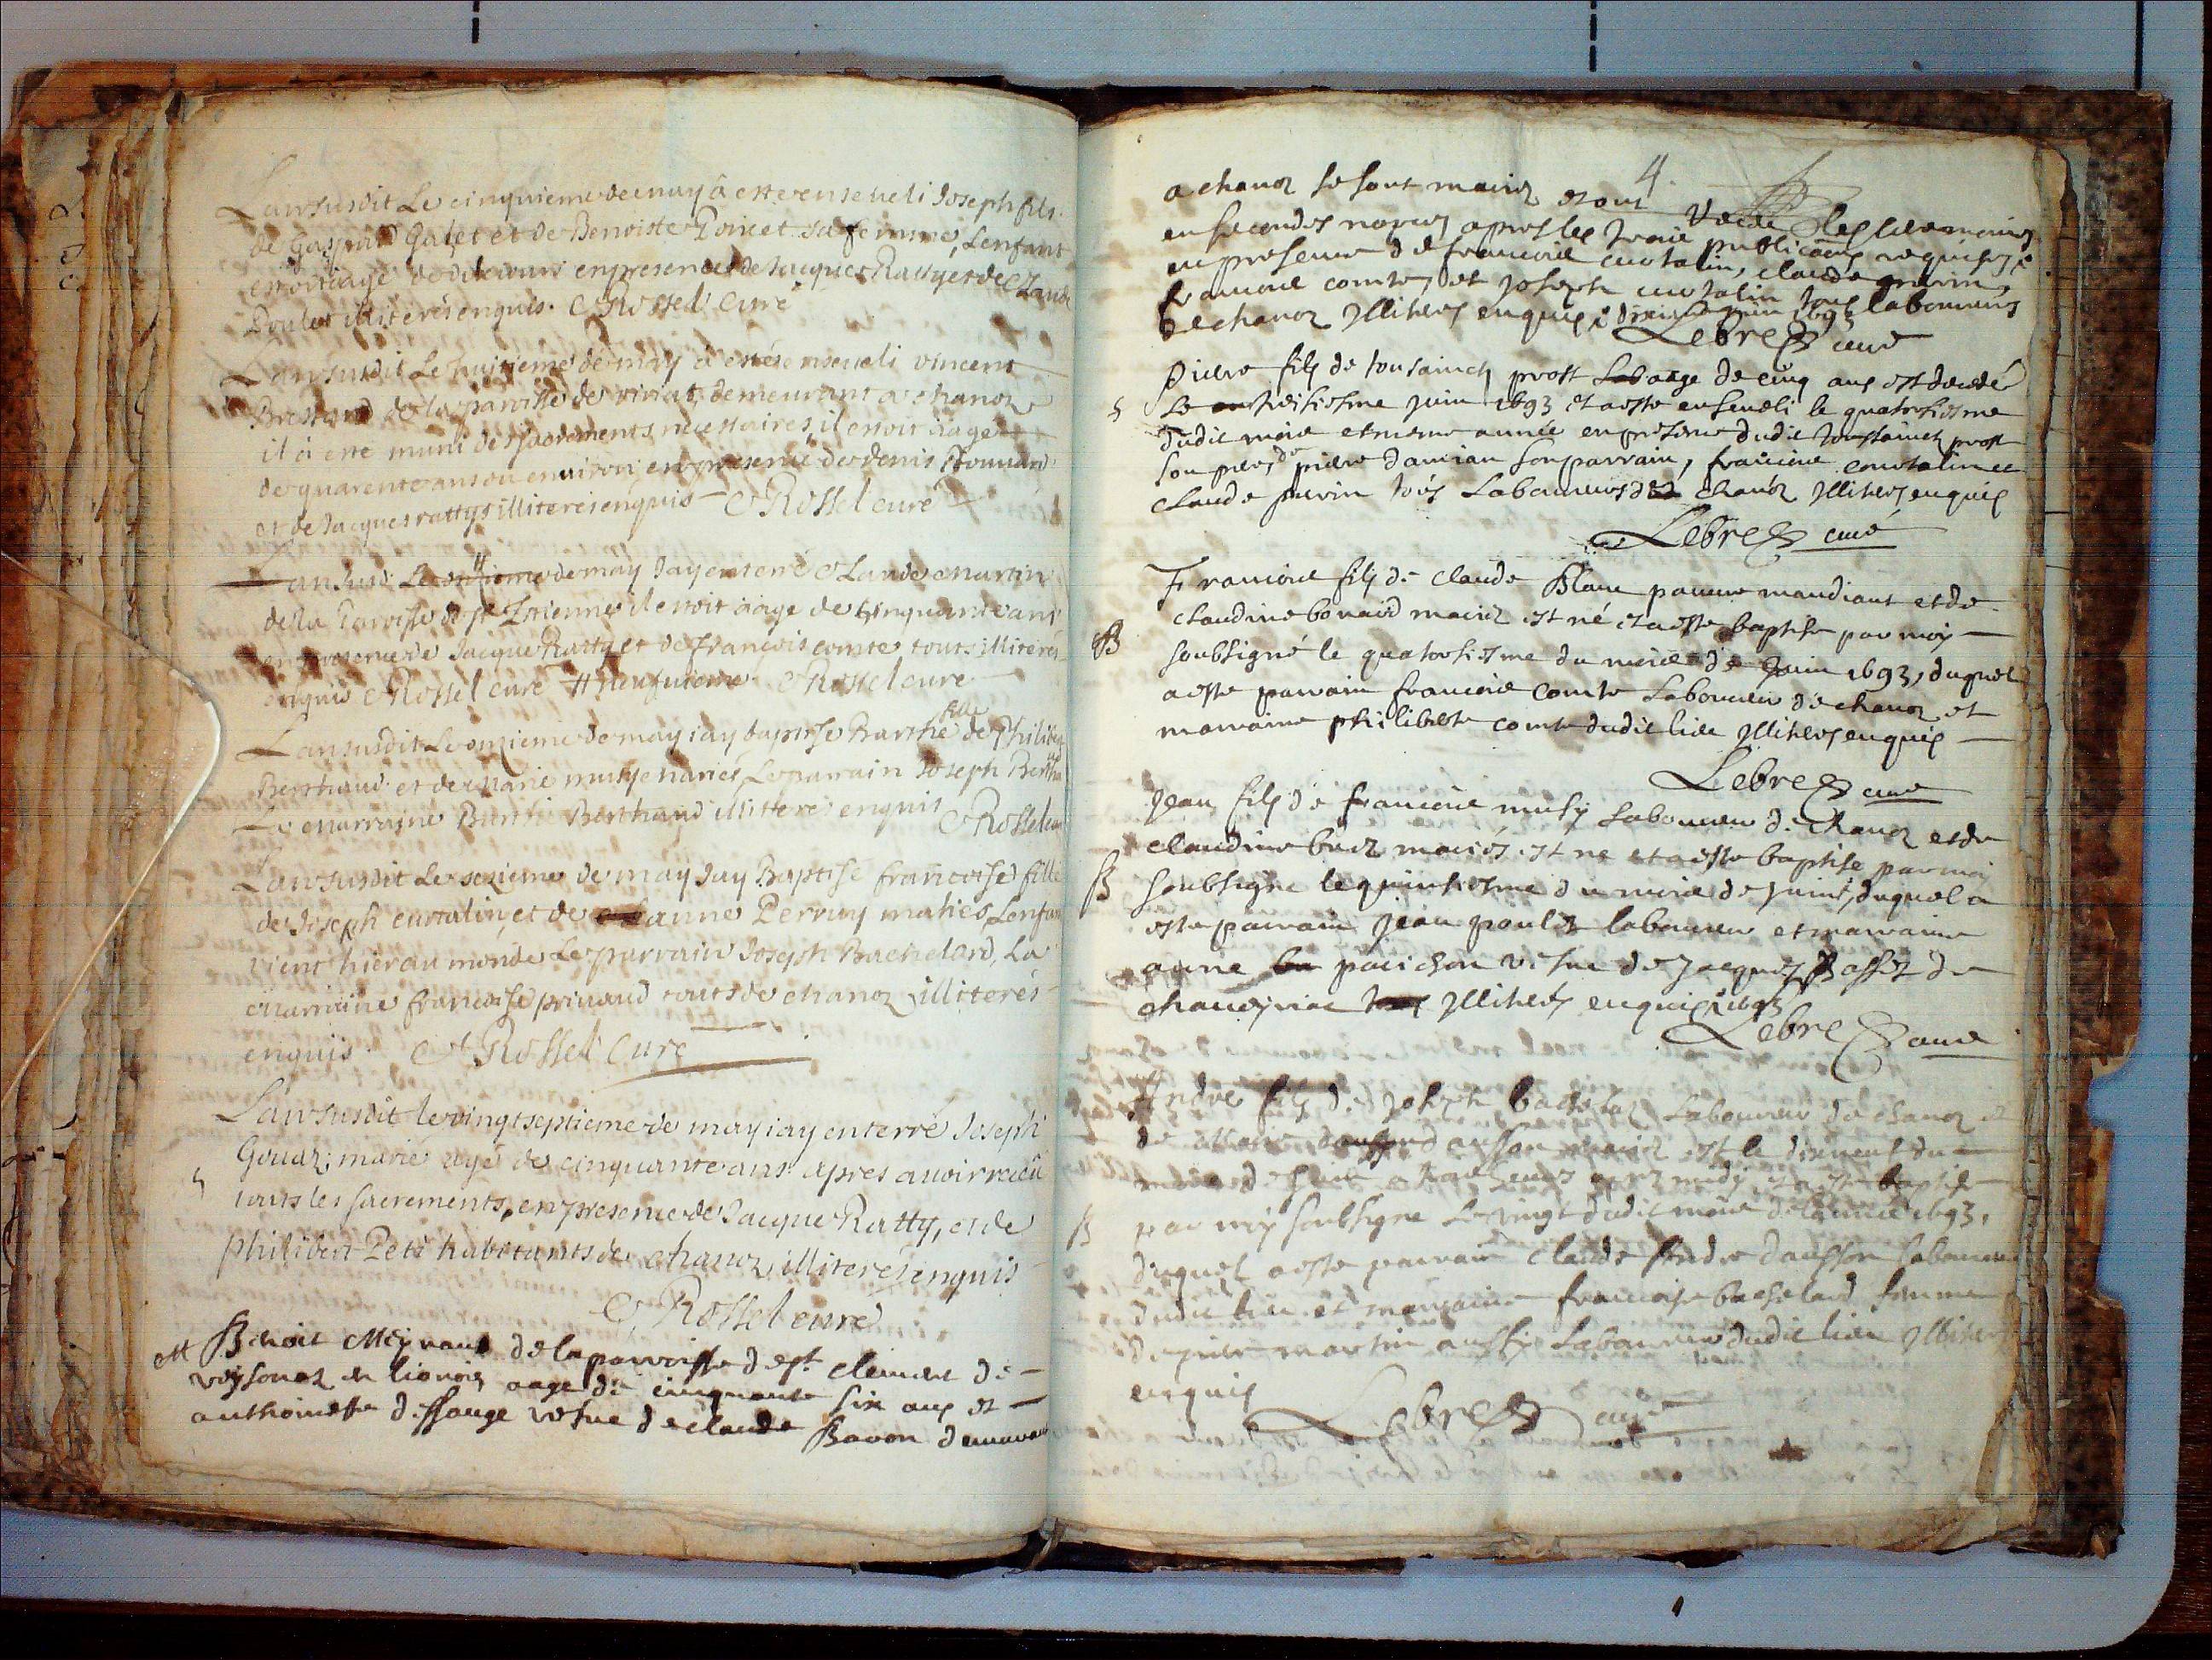 Lan susdit Le cinquieme de may à esté enseveli Joseph fils
de Gaspard Galet et de Benoiste Poncet sa femme, Lenfant
estoit agé de dix jours en presence de Jacques Rattyet de Claude
Poulet illiterés enquis. C Rossel Curé
Lan susdit Le huitieme de may à esté enseveli vincent
Bressand de la paroisse de viriat, demeurant a chanoz
il à esté muni des sacrements necessaires, il estoit aagé
de quarente ans ou environ en presence de denis
et de Jacques rattys illiterés enquis C Rossel curé
Lan susd. Le onzieme de may Jay enterré Claude Martin
de la Paroisse de st Etienne il estoit aagé de Cinquante ans
en presence de Jacque Ratty et de françois comte touts illiterés
enquis C Rossel curé # neufuieme C Rossel curé
fille
Lan susdit Le onzieme de may iay baptisé Barthe de Philibert
Berthaud et de Marie musy mariés, Le parrain Joseph
La marraine Barthe Berthaud illiteré enquis C Rossel curé
Lan susdit Le sezieme de may Jay Baptisé francoise fille
de Joseph curtalin, et de anne Perruy mariés, Lenfant
vient hier au monde Le parrain Joseph Bachelard, La
marraine francoise privaud touts de chanoz illiterés
enquis. C Rossel Curé
Lan susdit le vingtseptieme de may iay enterré Joseph
Gouaz, marié agé de cinquante ans apres avoir receü
touts les sacrements, en presence de Jacque Ratty, et de
philibert Peté habitants de chanoz, illiterés enquis
C Rossel curé
M Benoit Meynand de la parroisse de st clement de
en lionois aage de cinquante six ans et
anthoinette vefve de claude Bavon demeurant
4
a chanoz se sont mariez et ont
en secondes nopces apres les trois publicaons requises
en presence de francois curtalin, claude perrin,
francois comte, et Joseph curtalin tous laboureurs
de chanoz Illiteres enquis Juin 1693
Lebrez curé
Piere fils de tousainct prost aage de cinq ans est decedé
S le treisiesme Juin 1693 et a esté enseveli le quatorsiesme
dudit mois et mesme année en presence dudit tousainct prost
son pere, de piere damian son parrain, francois curtalin et
claude perrin tous Laboureurs de chanoz Illiteres enquis
Lebrez curé
Francois fils de claude Blanc pauvre mandiant et de
claudine bonard mariez est né et a esté baptisé par moy
B soubsigné le quatorsiesme du mois de Juin 1693, duquel
a esté parrain francois comte Laboureur de chanoz et
marraine philiberte comte dudit lieu Illiteres enquis
Lebrez curé
Jean fils de francois musy Laboureur de chanoz et de
claudine mariés est né et a esté baptisé par moy
B soubsigné le quinsiesme du mois de Juin, duquel a
esté parrain Jean poulet laboureur et marraine
anne vefve de Jacques de
Illiteres enquis 1693
Lebrez curé
Andre fils de Joseph Laboureur de chanoz et
de mariez est le disneuf du
mois de
B par moy soubsigné Le vingt dudit mois de lannée 1693,
duquel a esté parrain claude Andre dausson Laboureur
dudit lieu et marraine francoise bachelard femme
de piere martin aussy Laboureur dudit lieu Illiteres
enquis
Lebrez curé